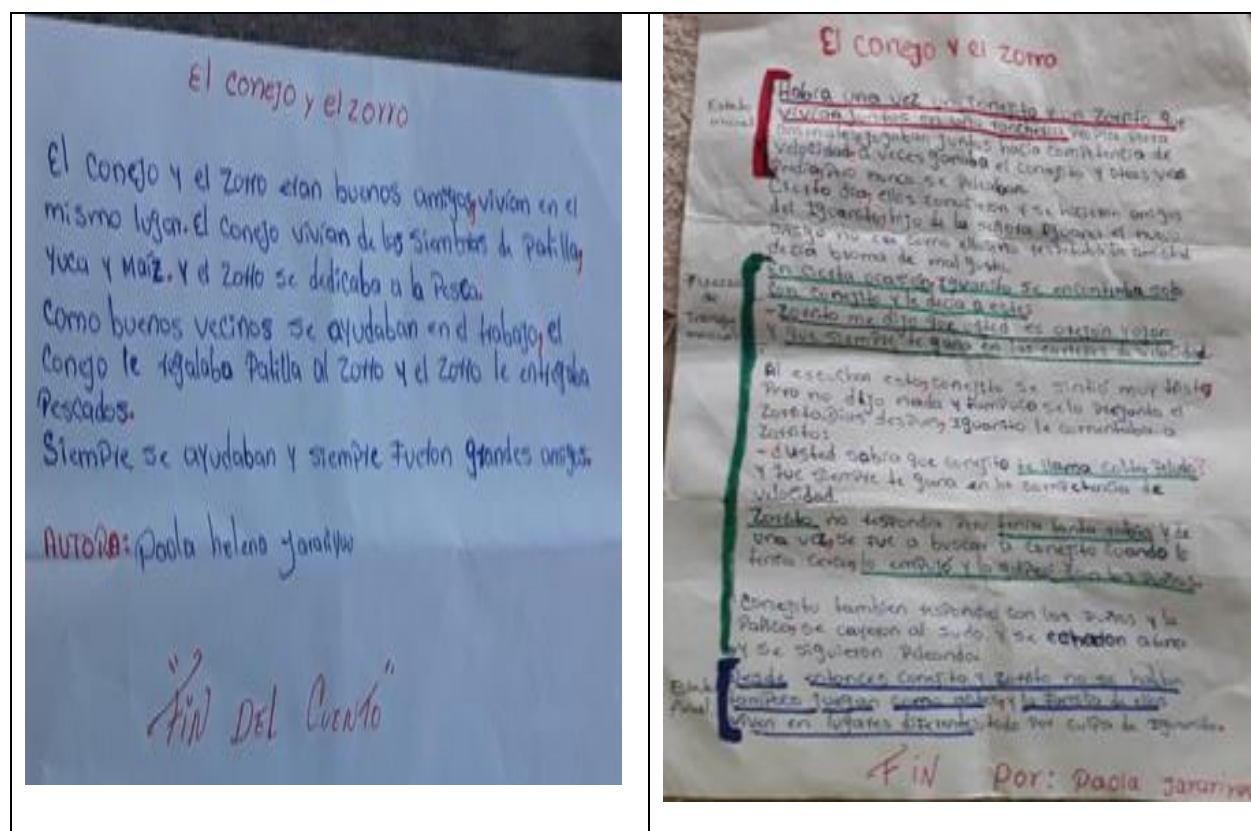 El conejo y el zorro
El conejo y el zorro eran buenos amigos, vivían en el
mismo lugar. El conejo vivian de las siembras de patilla,
yuca y Maíz. Y el zorro se dedicaba a la Pesca.
Como buenos vecinos se ayudaban en el trabajo, el
Conejo le regalaba Patilla al zorro y el zorro le entregaba
Pescados.
Siempre se ayudaban y siempre Fueron grandes amigos.
AUTORA: Paola helena
"Fin DEL CUENTO"
El conejo y el zorro
Estado inicial
Había una vez un conejito y un zorrito que
vivían juntos en una ranchería
animales jugaban juntos hacía competencia de
velocidad a veces ganaba el conejito y otras veces
nunca se peleaban
Cierto día, ellos conocieron y se hicieron amigos
del Iguanito hijo de la señora Iguana el nuevo
amigo no era como ellos no la amistad
decía broma de mal gusto.
Proceso de
En cierta ocasión, Iguanito se encontraba solo
con conejito y le decía a este:
- Zorrito me dijo que usted es orejón
y que siempre te gana en las carreras de velocidad
Al escuchar esto, conejito se sintió muy triste,
Pero no dijo nada y tampoco se lo pregunto el
Zorrito. Días después, Iguanito le comentaba a
Zorrito:
- ¿Usted sabía que conejito te llama Peludo?
y que siempre te gana en la competencia de
velocidad.
Zorrito no respondía pero tenía tanta rabia y de
una vez, se fue a buscar a conejito cuando lo
tenía cerca, lo empujó y lo con los puños.
Conejito tambien respondió con los puños y la
se cayeron al suelo y se echaron
y se siguieron Peleando.
Estado final
Desde entonces conejito y zorrito no se hablan
tampoco juegan como antes, y la familia de ellos
viven en lugares diferentes, todo por culpa de Iguanito.
Fin Por: Paola